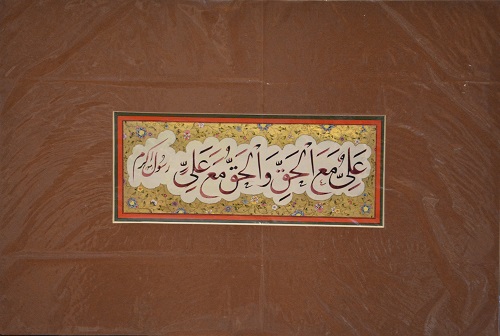 عَلِیٌّ مَعَ الْحَقِّ وَ الْحَقُّ مَعَ عَلِیٍّ رسول اکرم